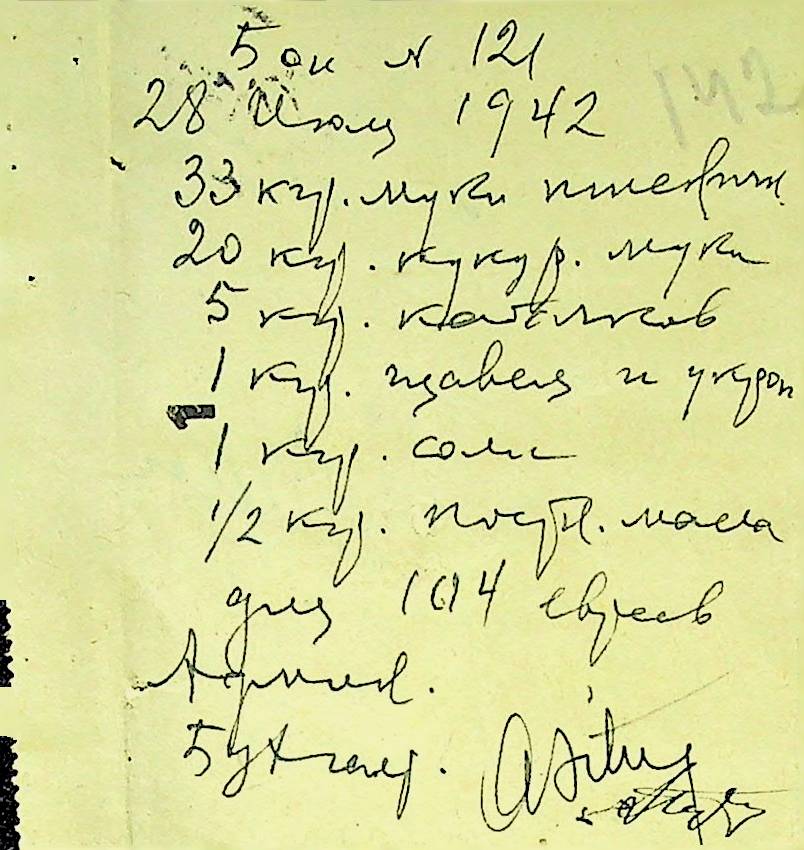 Бон № 121
142
28 Июля 1942
33 кгр. муки пшеничн.
20 кгр. кукур. муки
5 кгр. кабачков
1 кгр. щавеля и укроп
1 кгр. соли
1/2 кгр. постн. масла
для 104 евреев
Админ.
Бухгалт.